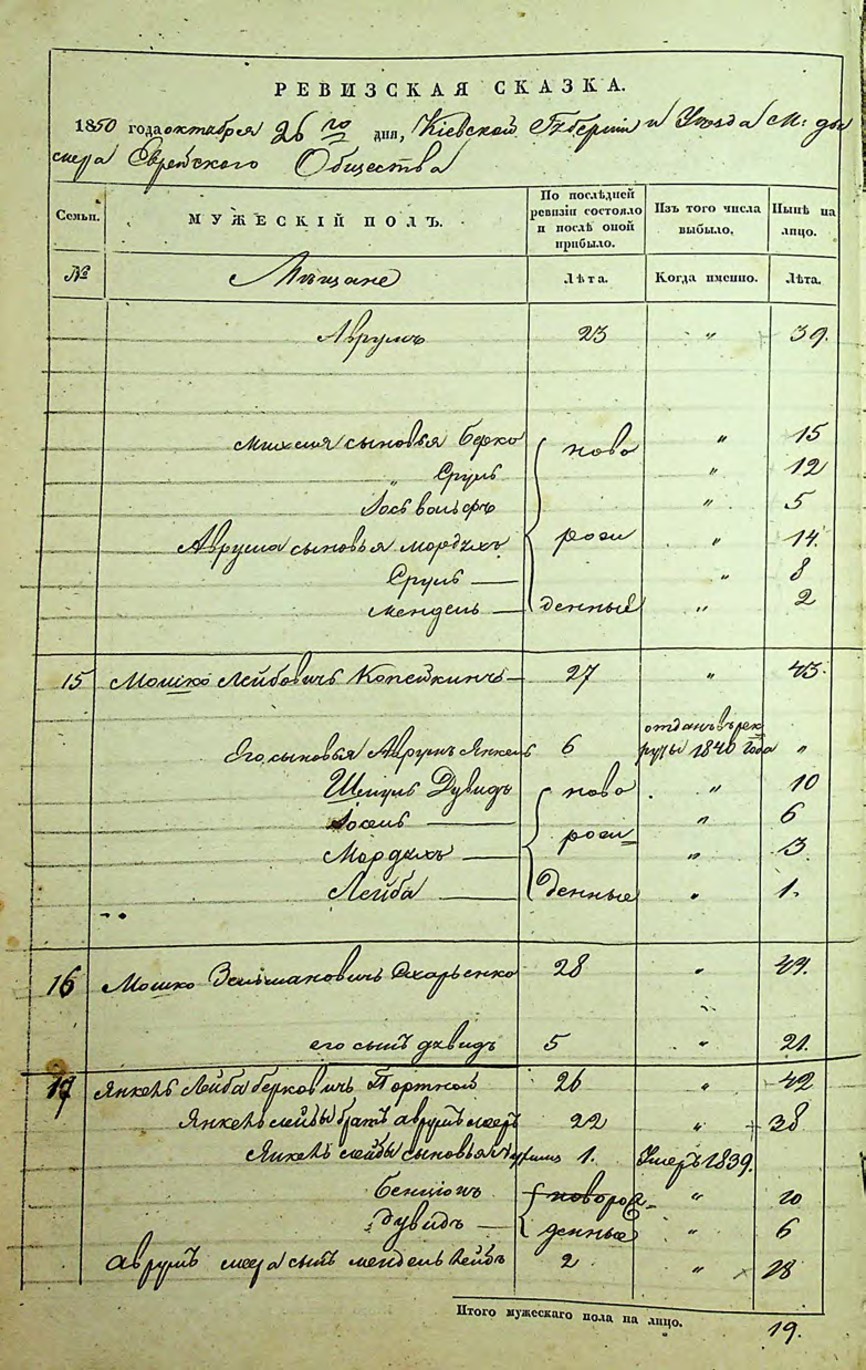 РЕВИЗСКАЯ СКАЗКА.
1850 года октября 26го дня, Кіевской Губерніи и Уезда М: ды
мера Еврейского Общества
Семьи. МУЖЕСКІЙ ПОЛЪ. По послѣдней ревизіи состояло и послѣ оной прибыло. Изъ того числа выбыло. Нынѣ на лицо.
№ Мѣщане Лѣта. Когда именно. Лѣта.
Аврумъ 23 " 39.
сыновья Берко ново " 15
" Сруль " 12
Іось вольфъ " 5
Аврума сыновья Мордухъ рож " 14.
Сруль — " 8
Мендель — денные " 2
15 Мошко Лейбовичъ Копейкинъ — 27 " 43.
Его сыновья Аврумъ Янкель 6 отданъ въ рек
руты 1840 года "
Шмуль Дувидъ ново " 10
Іосель — " 6
Мордухъ — рож " 3.
Лейба — денные " 1.
16 Мошко Зельмановичъ 28 " 44.
его сынъ давидъ 5 " 21.
17 Янкель Лейба берковичъ Портной 26 " 42
Янкель лейбы братъ аврумъ меер 22 " 38
Янкель лейбы сыновья 1. Умеръ 1839.
Бенціонъ новорож " 10
Дувидъ — денные " 6
аврумъ меера сынъ мендель Лейбъ 2 " 18
Итого мужескаго пола на лицо. 19.